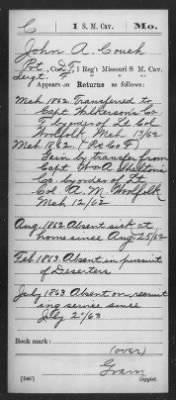 C 1 S. M. Cav. Mo.
John A. Couch
Pvt., Co. F, 1 Reg't Missouri S. M. Cav.
Sergt. F
Appears on Returns as follows:
Mch 1862 Transferred to
Capt Wilkerson's Co
F by order of Lt Col
Woolfolk Mch 12/62
Mch 1862. (Pvt Co F)
Gain by transfer from
Capt Wm A Skelton's
Co. by order of Lt
Col A. M. Woolfolk
Mch 12/62
Aug. 1862 Absent sick at
home since Aug 25/62
Feb 1863 Absent in pursuit
of Deserters
July 1863 Absent on recruit
ing service since
July 2"/63
Book mark:
(over)
Gram
(546) Copyist.